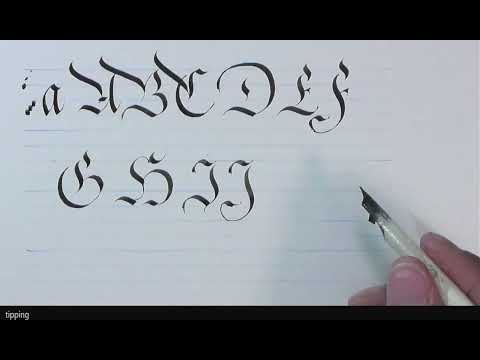 a A B C D E F
G H I J
tipping